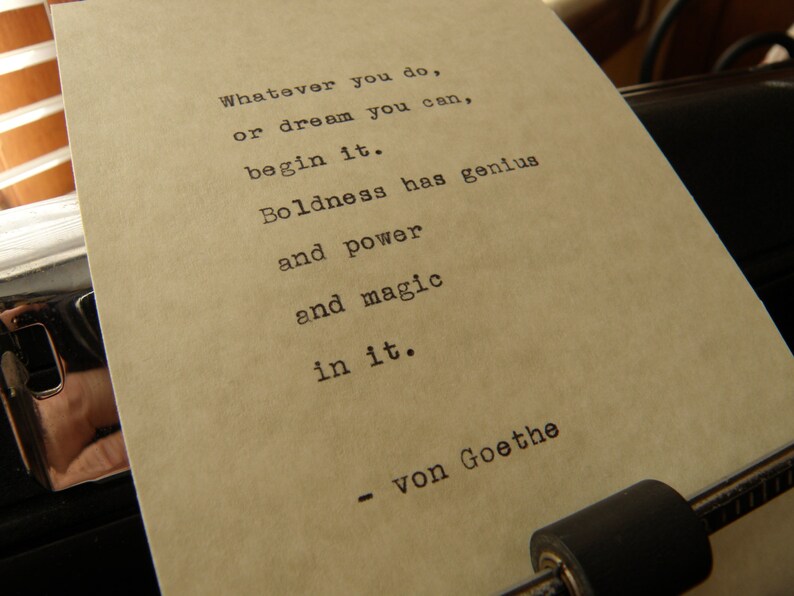 Whatever you do,
or dream you can,
begin it.
Boldness has genius
and power
and magic
in it.
- von Goethe